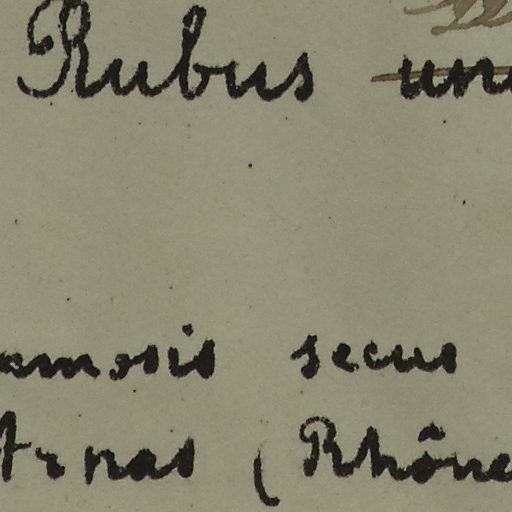 Rubus un
amosis secus
Arnas (Rhône